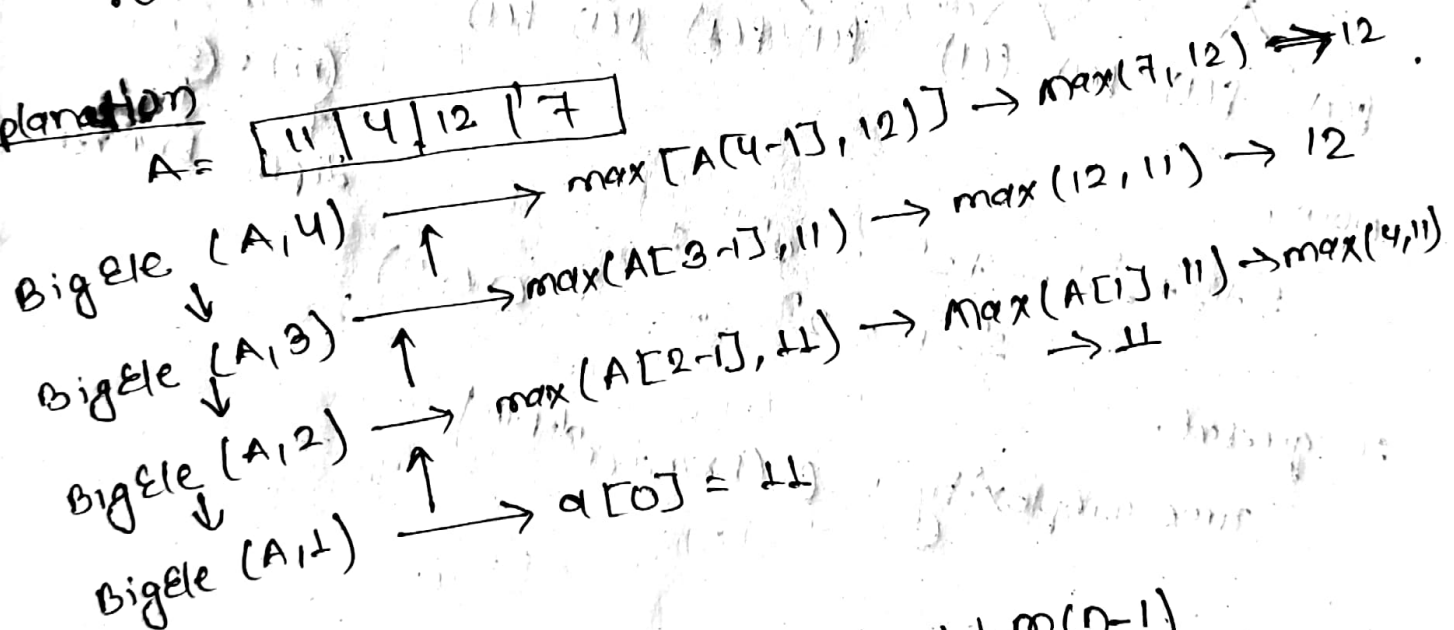 planation
A = 11 | 4 | 12 | 7
BigEle (A,4) → max [A[4-1], 12)] → max(7,12) ⇒ 12
↓ ↑
BigEle (A,3) → max(A[3-1], 11) → max (12, 11) → 12
↓ ↑
BigEle (A,2) → max (A[2-1], 11) → Max (A[1], 11) → max(4,11)
→ 11
↓ ↑
BigEle (A,1) → a[0] = 11
m(n-1)